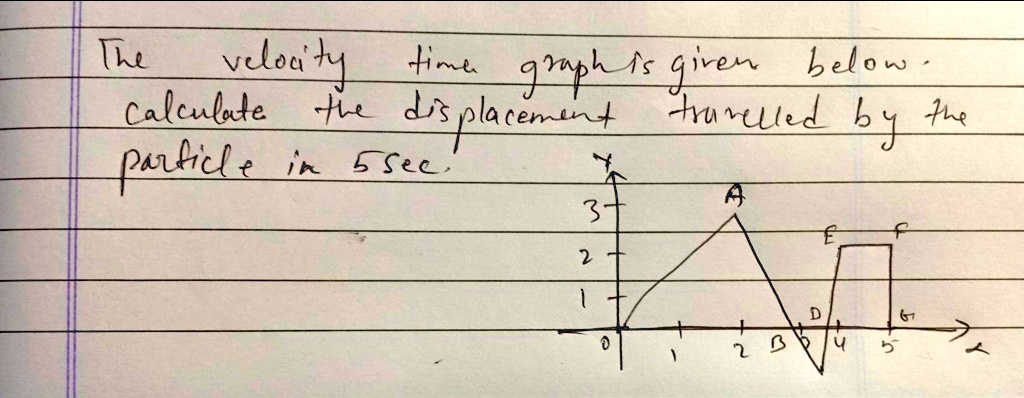 The velocity time graph is given below.
calculate the displacement travelled by the
particle in 5 sec.
Y
A
3
E F
2
1
D G
0 1 2 B 3 4 5 x